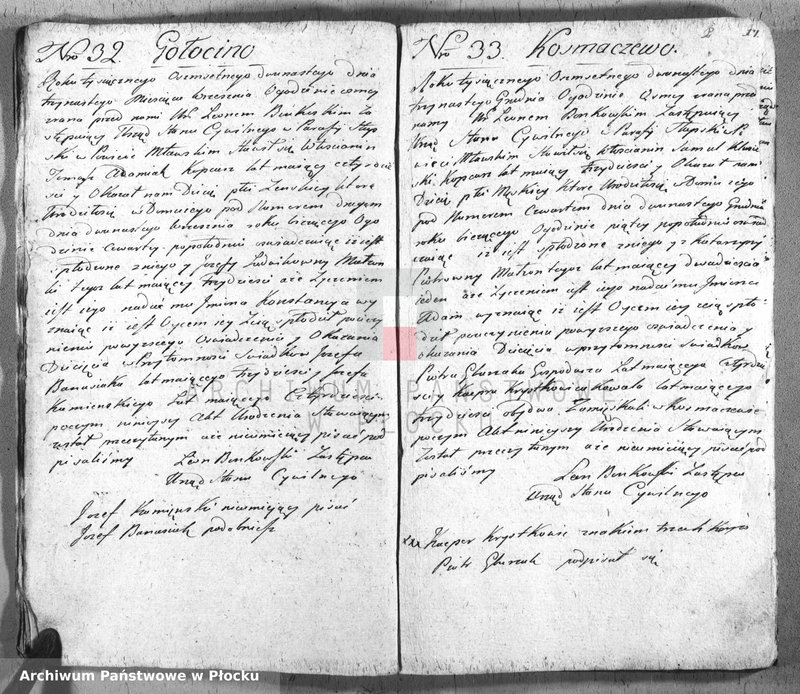 Nro 32. Gołocino
Roku tysiącznego Osmsetnego dwunastego dnia
trzynastego Miesiąca Wrzesnia Ogodzinie osmey
zrana przed nami Leonem Bonkoskim Za
stępuiący Urząd Stanu Cywilnego w Parafy Słup
ski w Powiecie Mławskim Stawił się Włościanin
Tomasz Adamiak Kopacz lat maiący czterdzie
sci y Okazał nam Dziecię płci Zenskiey które
Urodziło się w Domu iego pod Numerem Drugim
dnia dwunastego Wrzesnia roku bieżącego Ogo
dzinie czwarty popołudniu oswiadczaiąc iż iest
spłodzone z niego y Jozefy Ludwikowny Małzon
ki tegoz lat maiący trzydziesci a że Zyczeniem
iest iego nadac mu Jmiona Konstancya wy
znaiąc iż iest Oycem iey spłodził poczy
nieniu powyzszego Oswiadczenia y Okazania
Dziecięcia w Przytomnosci Swiadków Jozefa
Banasiaka lat maiącego trzydziesci y Jozefa
Kaminskiego Lat maiącego Czterdziesci
poczym ninieyszy Akt Urodzenia Stawaiącym
został przeczytanym a że nieumieiący pisać pod
pisaliśmy Leon Bonkowski Zastępca
Urząd Stanu Cywilnego
Jozef Kaminski nieumieiący pisać
Jozef Banasiak podobniesz
Nro 33. Kosmaczewo.
Roku tysiącznego Osmsetnego dwunastego dnia
trzynastego Grudnia Ogodzinie Osmey zrana przed
namy Leonem Bonkowskim Zastępuiący
Urząd Stanu Cywilnego w Parafy Słupski w Po
wieci Mławskim Stawił się Włoscianin
Kopacz lat maiący trzydziesci y Okazał nam
Dziecię płci Męskiey które Urodziło się w Domu iego
pod Numerem Czwartem dnia dwunastego Grudnia
roku bieżącego Ogodzinie piątey popołudniu oswiad
czaiąc iż iest spłodzone z niego y z Katarzyny
Piotrowny Małzonki tegoz lat maiącey dwadziescia
ieden a że Zyczeniem iest iego nadac mu Jmiona
Adam wyznaiąc iż iest Oycem spło
dził poczynieniu powyzszego oswiadczenia y
okazania Dziecięcia w przytomnosci swiadków
Piotra Gospodarza Lat maiącego Czterdzie
sci y Kacpra Krystkowiaka Kowala lat maiącego
trzydziesci obydwa Zamięskali w Kosmaczewie
poczym Akt ninieyszy Urodzenia Stawaiącym
Został przeczytanym a że nieumieiący pisać pod
pisaliśmy
Leon Bonkowski Zastępca
Urząd Stanu Cywilnego
xxx Kacper Krystkowic znakiem trzech Krzyży
Piotr podpisał się
ARCHIWUM PAŃSTWOWE
W PŁOCKU
Archiwum Państwowe w Płocku